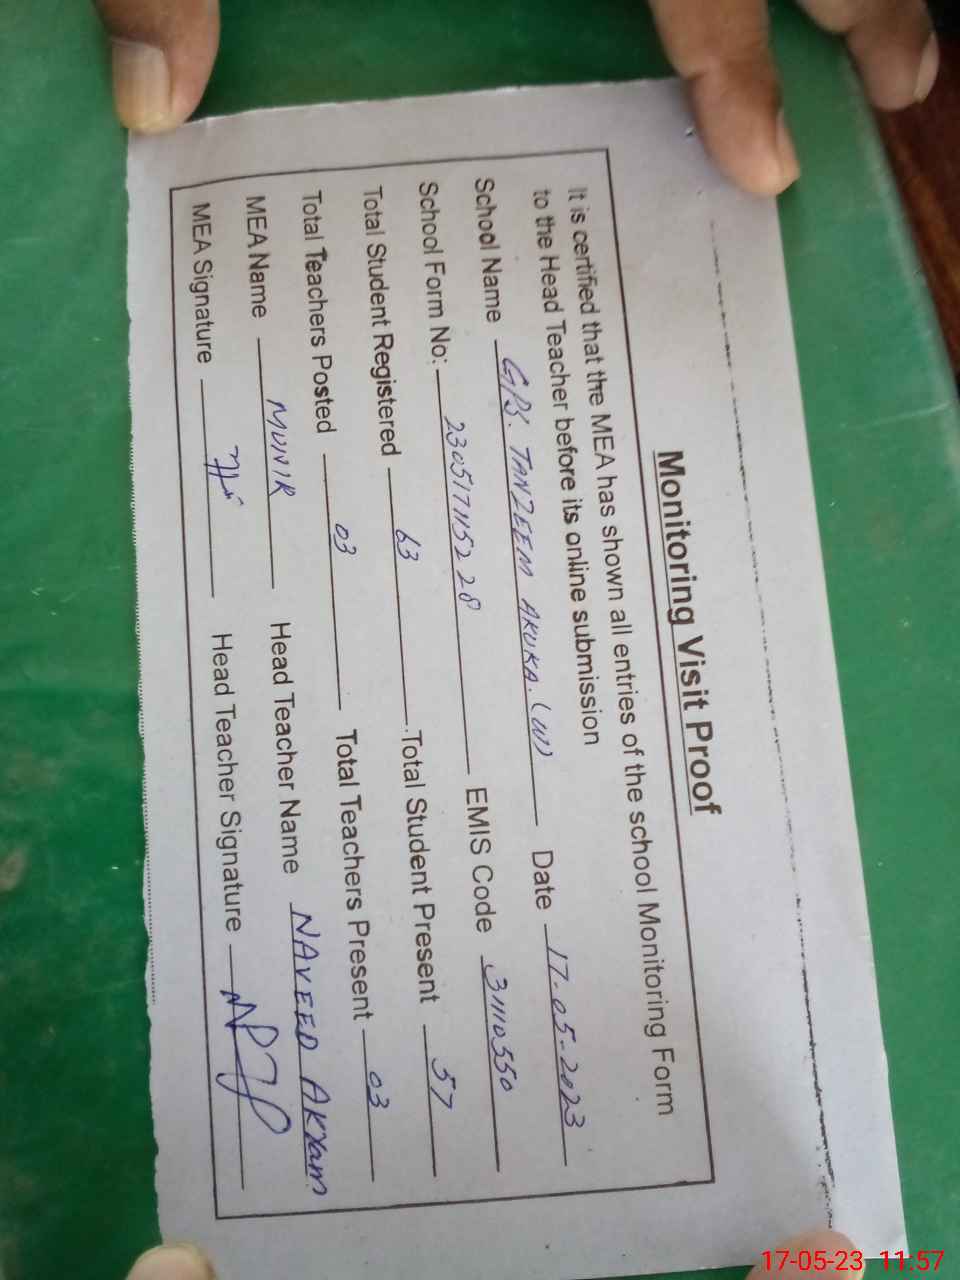 Monitoring Visit Proof
It is certified that the MEA has shown all entries of the school Monitoring Form
to the Head Teacher before its online submission
School Name GPS. TANZEEM AKUKA. (W) Date 17-05-2023
School Form No: 230517115228 EMIS Code 31110550
Total Student Registered 63 Total Student Present 57
Total Teachers Posted 03 Total Teachers Present 03
MEA Name MUNIR Head Teacher Name NAVEED AKRam
MEA Signature Head Teacher Signature
17-05-23 11:57